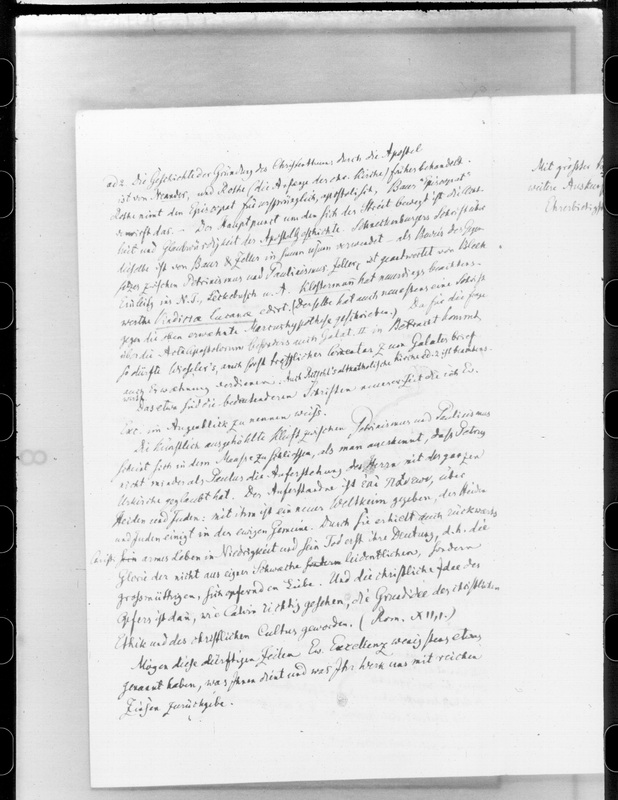 ad 2. Die Geschichte der Gründung des Christenthums durch die Apostel
ist von Neander, und Rothe (die Anfänge der chr. Kirche) früher behandelt.
Rothe nimt den Episcopat für ursprünglich, apostolisch, Baur "Episcopat"
verwirft das. – Der Hauptpunct um den sich der Streit bewegt ist die
und Glaubwürdigkeit der Apostelgeschichte. Schneckenburgers Schrift über
dieselbe ist von Baur & Zeller in suum usum verwendet – als Beweis des
zwischen Petrinismus und Paulinismus. Zeller ist geantwortet von
in N.S., Lekebusch u. A. Klostermañ hat neuerdings beachtens-
werthe Vindiciae Lucanae edirt. (Derselbe hat auch neuestens eine Schrift
gegen die oben erwähnte Marcushypothese geschrieben.) Da für die Frage
über die Acta apostolorum besonders auch Galat. II in Betracht kommt,
so dürfte Wieseler's, auch sonst trefflicher Comentar zum Galaterbrief
auch Erwähnung verdienen. Auch Ritschl's altkatholische Kirche ed. 2 ist beachtens-
werth.
Das etwa sind die bedeutenderen Schriften welche ich Ew.
Exc. im Augenblick zu nennen weiß.
Die künstlich ausgehöhlte Kluft zwischen Petrinismus und Paulinismus
scheint sich in dem Maaße zu schliessen, als man anerkennt, daß Petrus
nicht minder als Paulus die Auferstehung des Herrn mit der ganzen
Urkirche geglaubt hat. Der Auferstandne ist ἐπὶ πάντων, über
Heiden und Juden: mit ihm ist ein neuer Weltkeim gegeben, der Heiden
und Juden einigt in der ewigen Gemeine. Durch sie erhielt auch rückwärts
Christi armes Leben in Niedrigkeit und sein Tod erst ihre Deutung, d.h. die
Glorie der nicht aus eigner Schwäche leidentlichen, sondern
großmüthigen, sich opfernden Liebe. Und die christliche Idee des
Opfers ist dañ, wie Calvin richtig gesehen, die Grundidee der christlichen
Ethik und der christlichen Cultur geworden. (Rom. XII,1.)
Mögen diese dürftigen Zeilen Ew. Excellenz wenigstens etwas
genannt haben, was Ihnen dient und was Ihr Werk uns mit reichen
Zinsen zurückgebe.
Mit größter
weitere